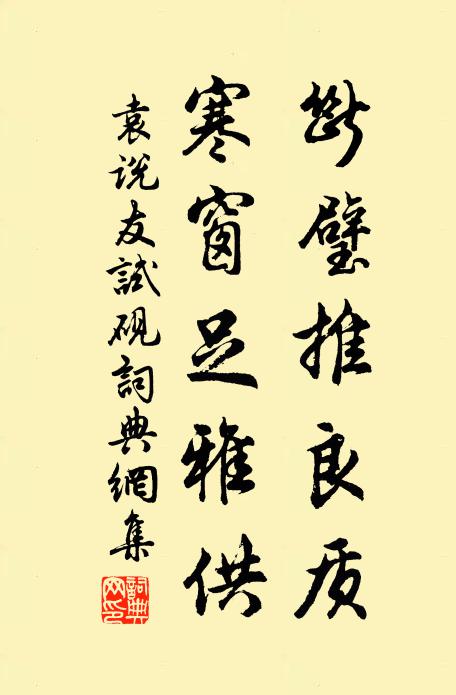 斷璧推良质
寒窗足雅供
袁说友試硯詞典網集
詞典网印